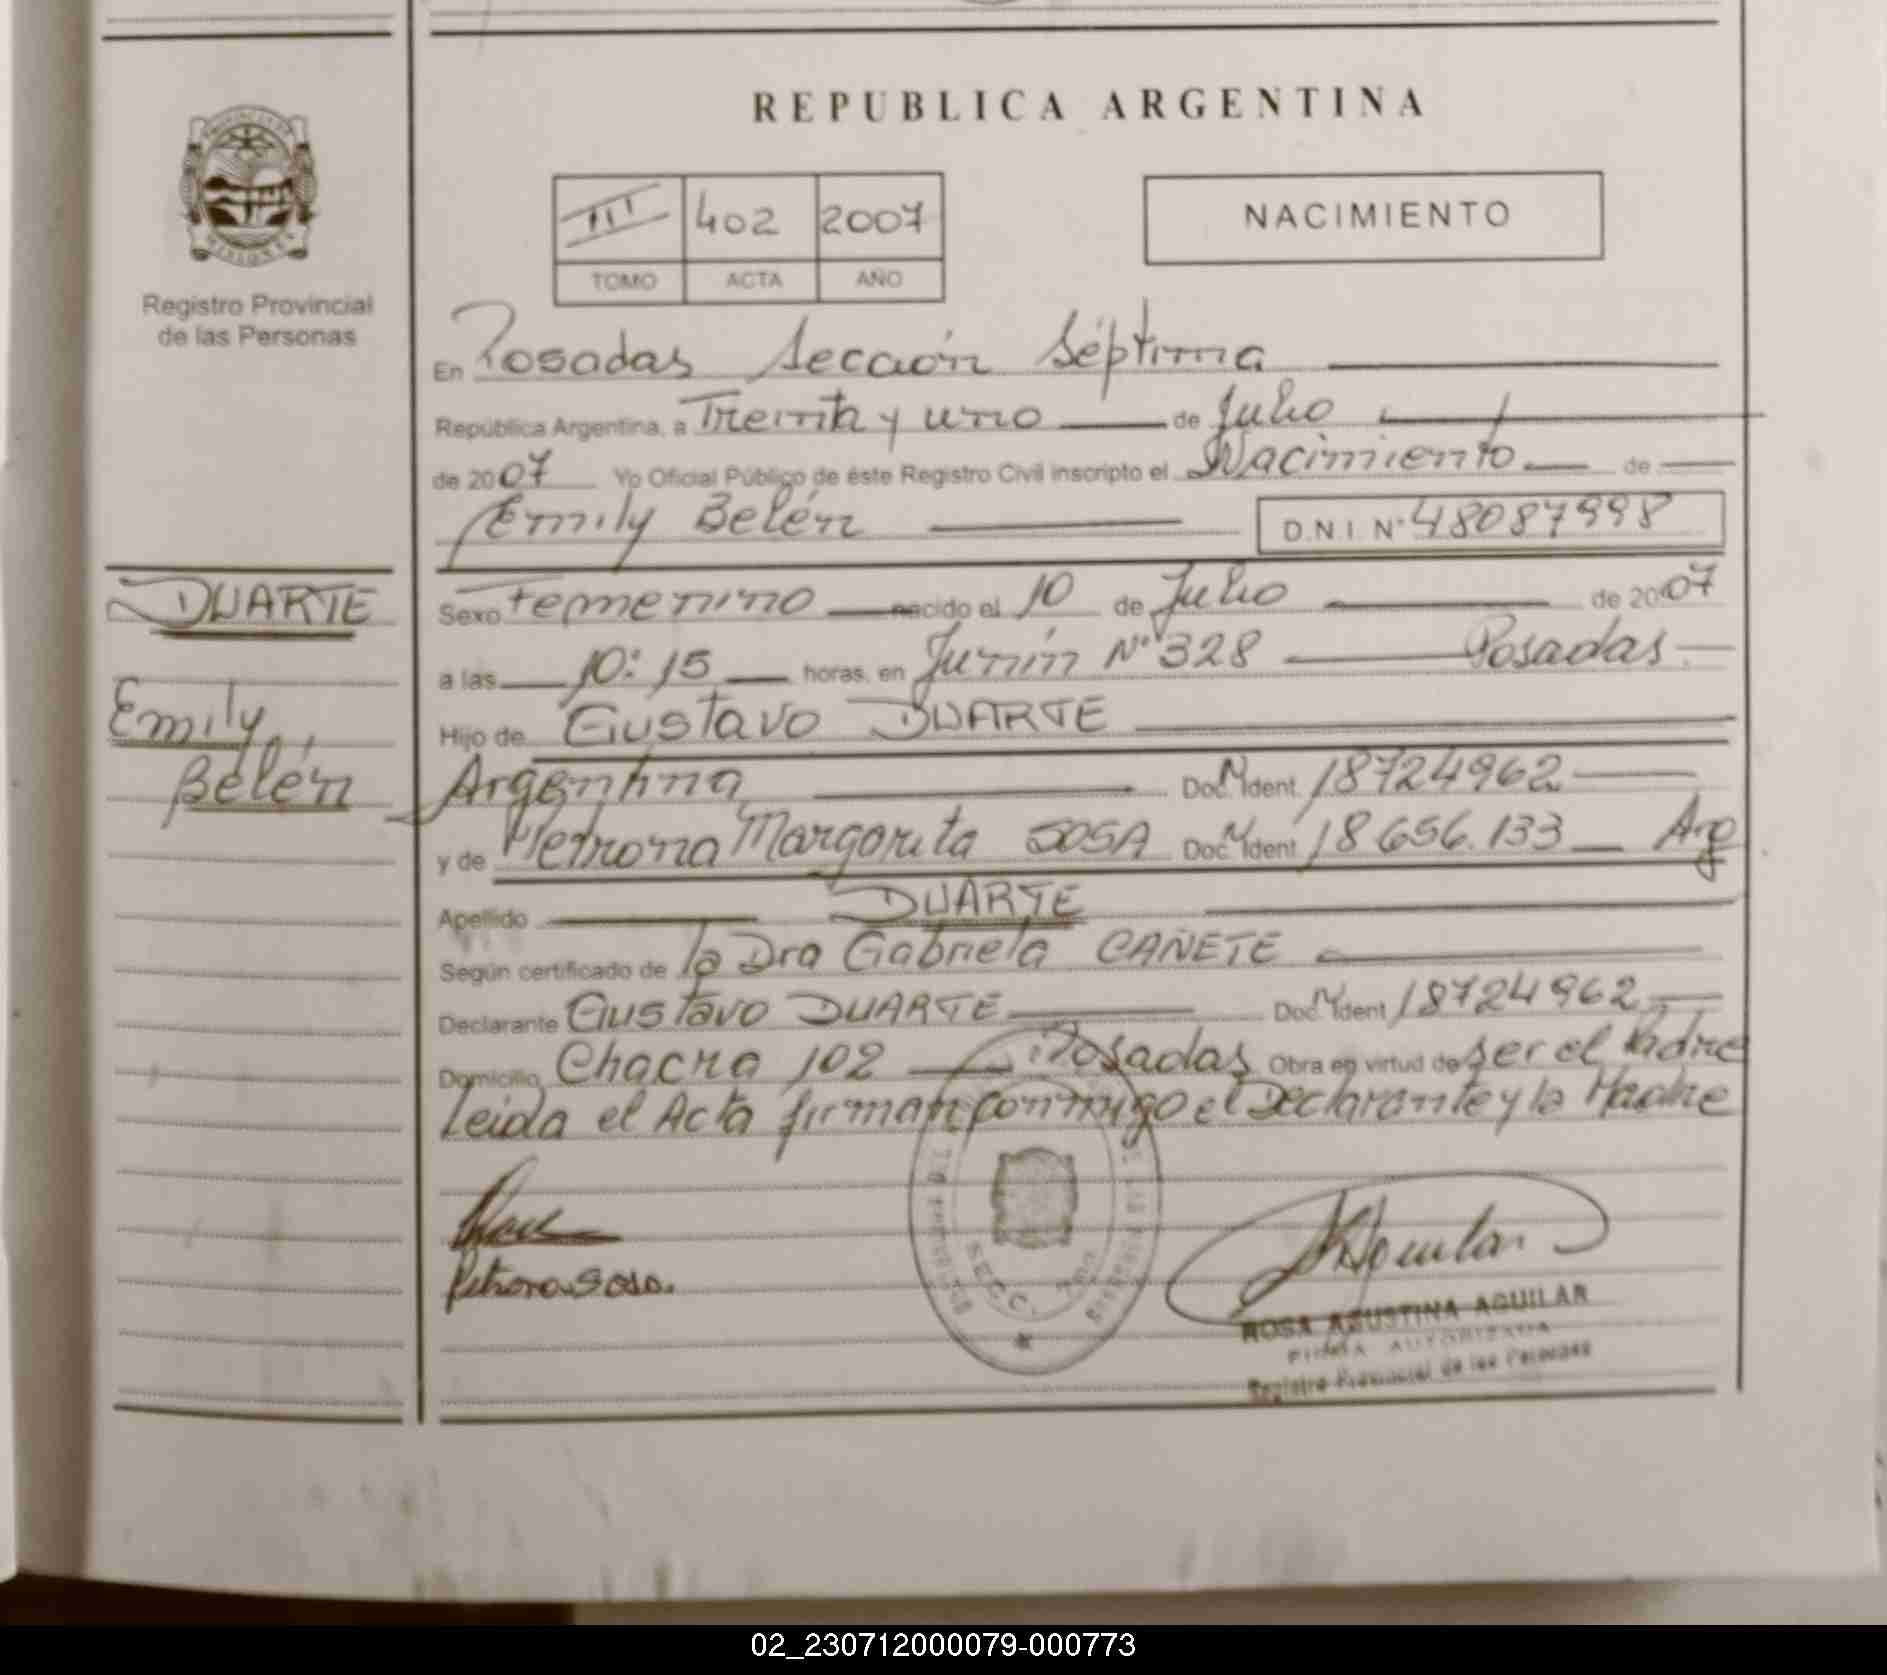 REPUBLICA ARGENTINA
III 402 2007
TOMO ACTA AÑO
NACIMIENTO
PROVINCIA DE
MISIONES
Registro Provincial
de las Personas
En Posadas Sección Séptima
República Argentina, a Treinta y uno de Julio
de 2007 Yo Oficial Público de éste Registro Civil inscripto el Nacimiento de
Emily Belén D.N.I. Nº 48087998
DUARTE
Emily
Belén
Sexo Femenino nacido el 10 de Julio de 2007
a las 10:15 horas, en Junín Nº 328 Posadas
Hijo de Gustavo DUARTE
Argentina Doc. N Ident. 18724962
y de Petrona Margarita SOSA Doc. N Ident. 18656.133 Arg
Apellido DUARTE
Según certificado de la Dra Gabriela CAÑETE
Declarante Gustavo DUARTE Doc. N Ident 18724962
Domicilio Chacra 102 Posadas Obra en virtud de ser el Padre
Leida el Acta firman conmigo el Declarante y la Madre
Petrona Sosa.
SECC. 7ma
ROSA AGUSTINA AGUILAR
FIRMA AUTORIZADA
Registro Provincial de las Personas
02_230712000079-000773